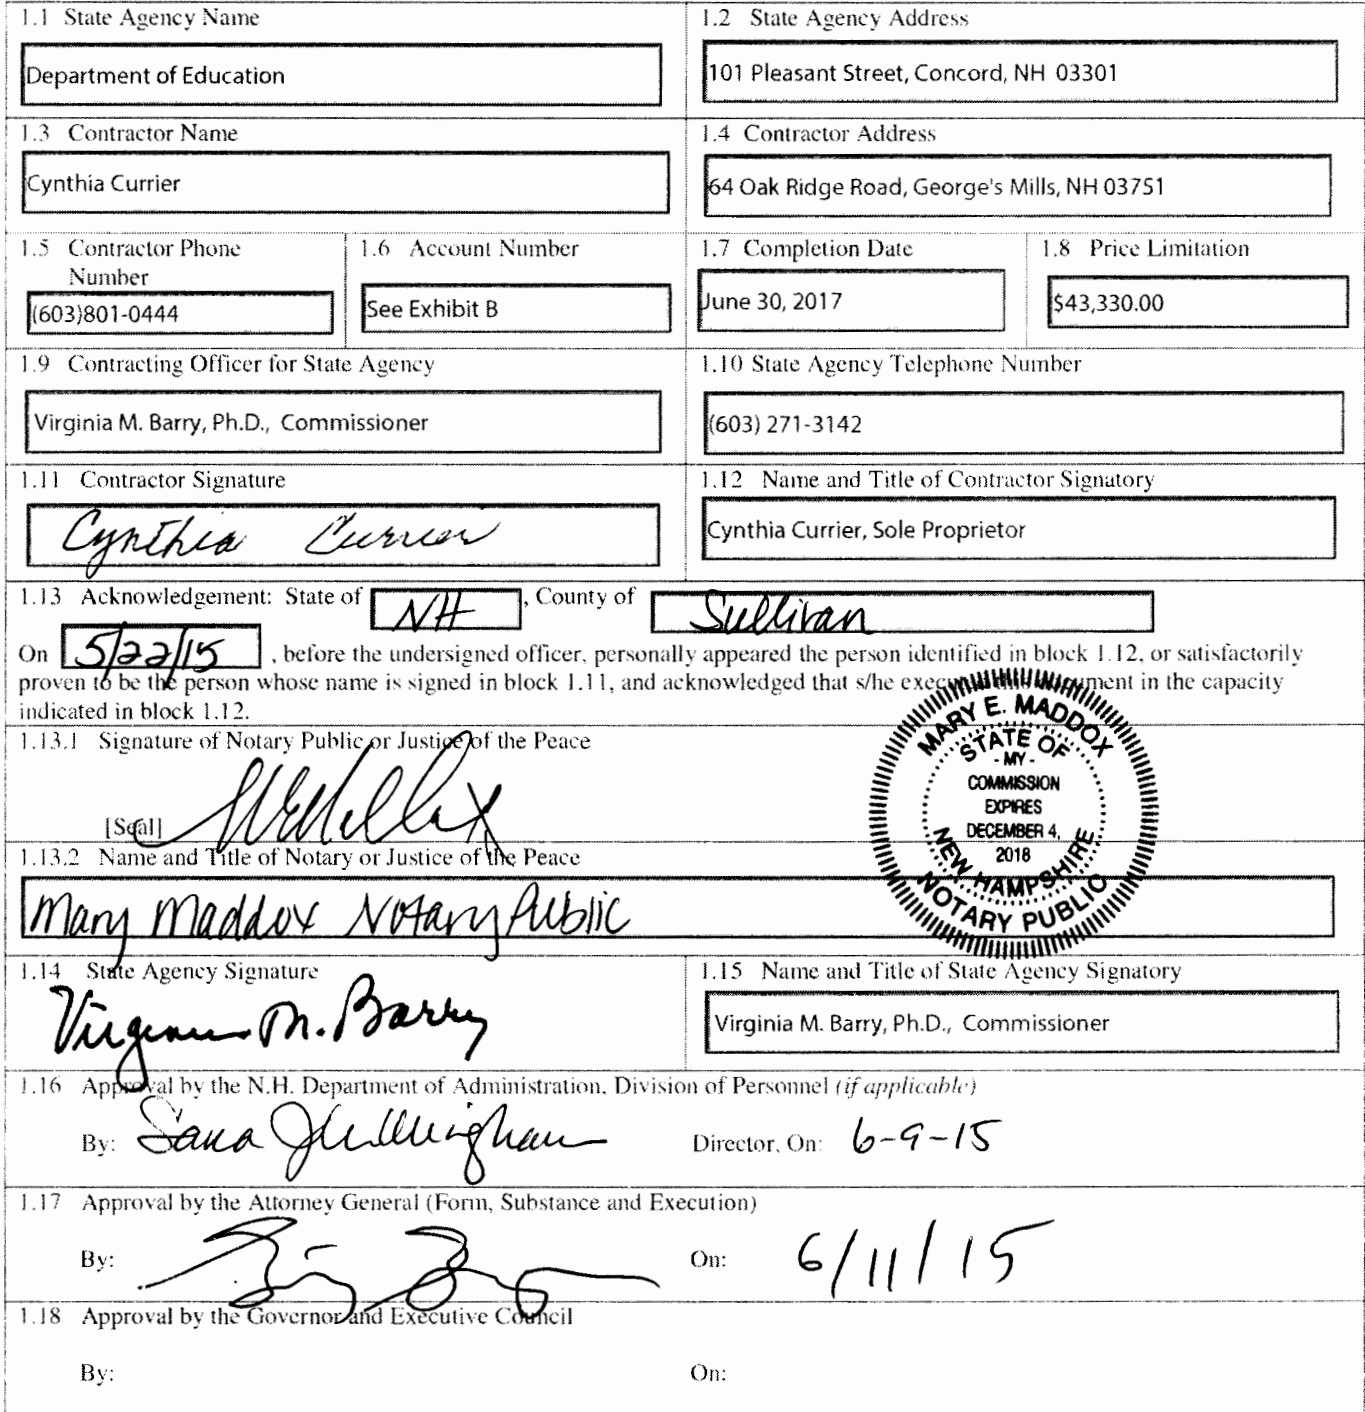 1.1 State Agency Name
Department of Education
1.2 State Agency Address
101 Pleasant Street, Concord, NH 03301
1.3 Contractor Name
Cynthia Currier
1.4 Contractor Address
64 Oak Ridge Road, George's Mills, NH 03751
1.5 Contractor Phone
Number
(603)801-0444
1.6 Account Number
See Exhibit B
1.7 Completion Date
June 30, 2017
1.8 Price Limitation
$43,330.00
1.9 Contracting Officer for State Agency
Virginia M. Barry, Ph.D., Commissioner
1.10 State Agency Telephone Number
(603) 271-3142
1.11 Contractor Signature
Cynthia Currier
1.12 Name and Title of Contractor Signatory
Cynthia Currier, Sole Proprietor
1.13 Acknowledgement: State of NH, County of Sullivan
On 5/22/15, before the undersigned officer, personally appeared the person identified in block 1.12, or satisfactorily
proven to be the person whose name is signed in block 1.11, and acknowledged that s/he executed this document in the capacity
indicated in block 1.12.
1.13.1 Signature of Notary Public or Justice of the Peace
[Seal]
MARY E. MADDOX
STATE OF
- MY -
COMMISSION
EXPIRES
DECEMBER 4,
2018
NEW HAMPSHIRE
NOTARY PUBLIC
1.13.2 Name and Title of Notary or Justice of the Peace
Mary Maddox Notary Public
1.14 State Agency Signature
Virginia M. Barry
1.15 Name and Title of State Agency Signatory
Virginia M. Barry, Ph.D., Commissioner
1.16 Approval by the N.H. Department of Administration, Division of Personnel (if applicable)
By: Director, On: 6-9-15
1.17 Approval by the Attorney General (Form, Substance and Execution)
By: On: 6/11/15
1.18 Approval by the Governor and Executive Council
By: On: